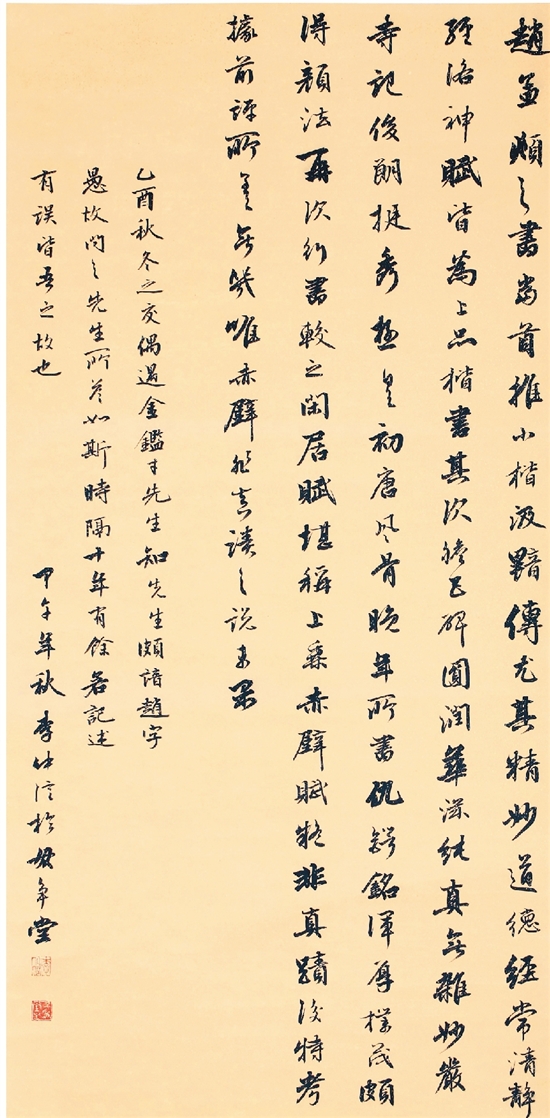 趙孟頫之書當首推小楷汲黯傳尤其精妙道德經常清靜
經洛神賦皆為上品楷書其次膽巴碑圓潤華滋純真無雜妙嚴
寺記俊朗挺秀極具初唐風骨晚年所書仇鍔銘渾厚樸茂頗
得顏法再次行書較之閑居賦堪稱上乘赤壁賦疑非真蹟後特考
據前評所差無幾唯赤壁非真蹟之說未果
乙酉秋冬之交偶遇金鑑才先生知先生頗諳趙字
愚故問之先生所答如斯時隔十年有餘若記述
有誤皆吾之故也
甲午年秋李仲信於毋爭堂